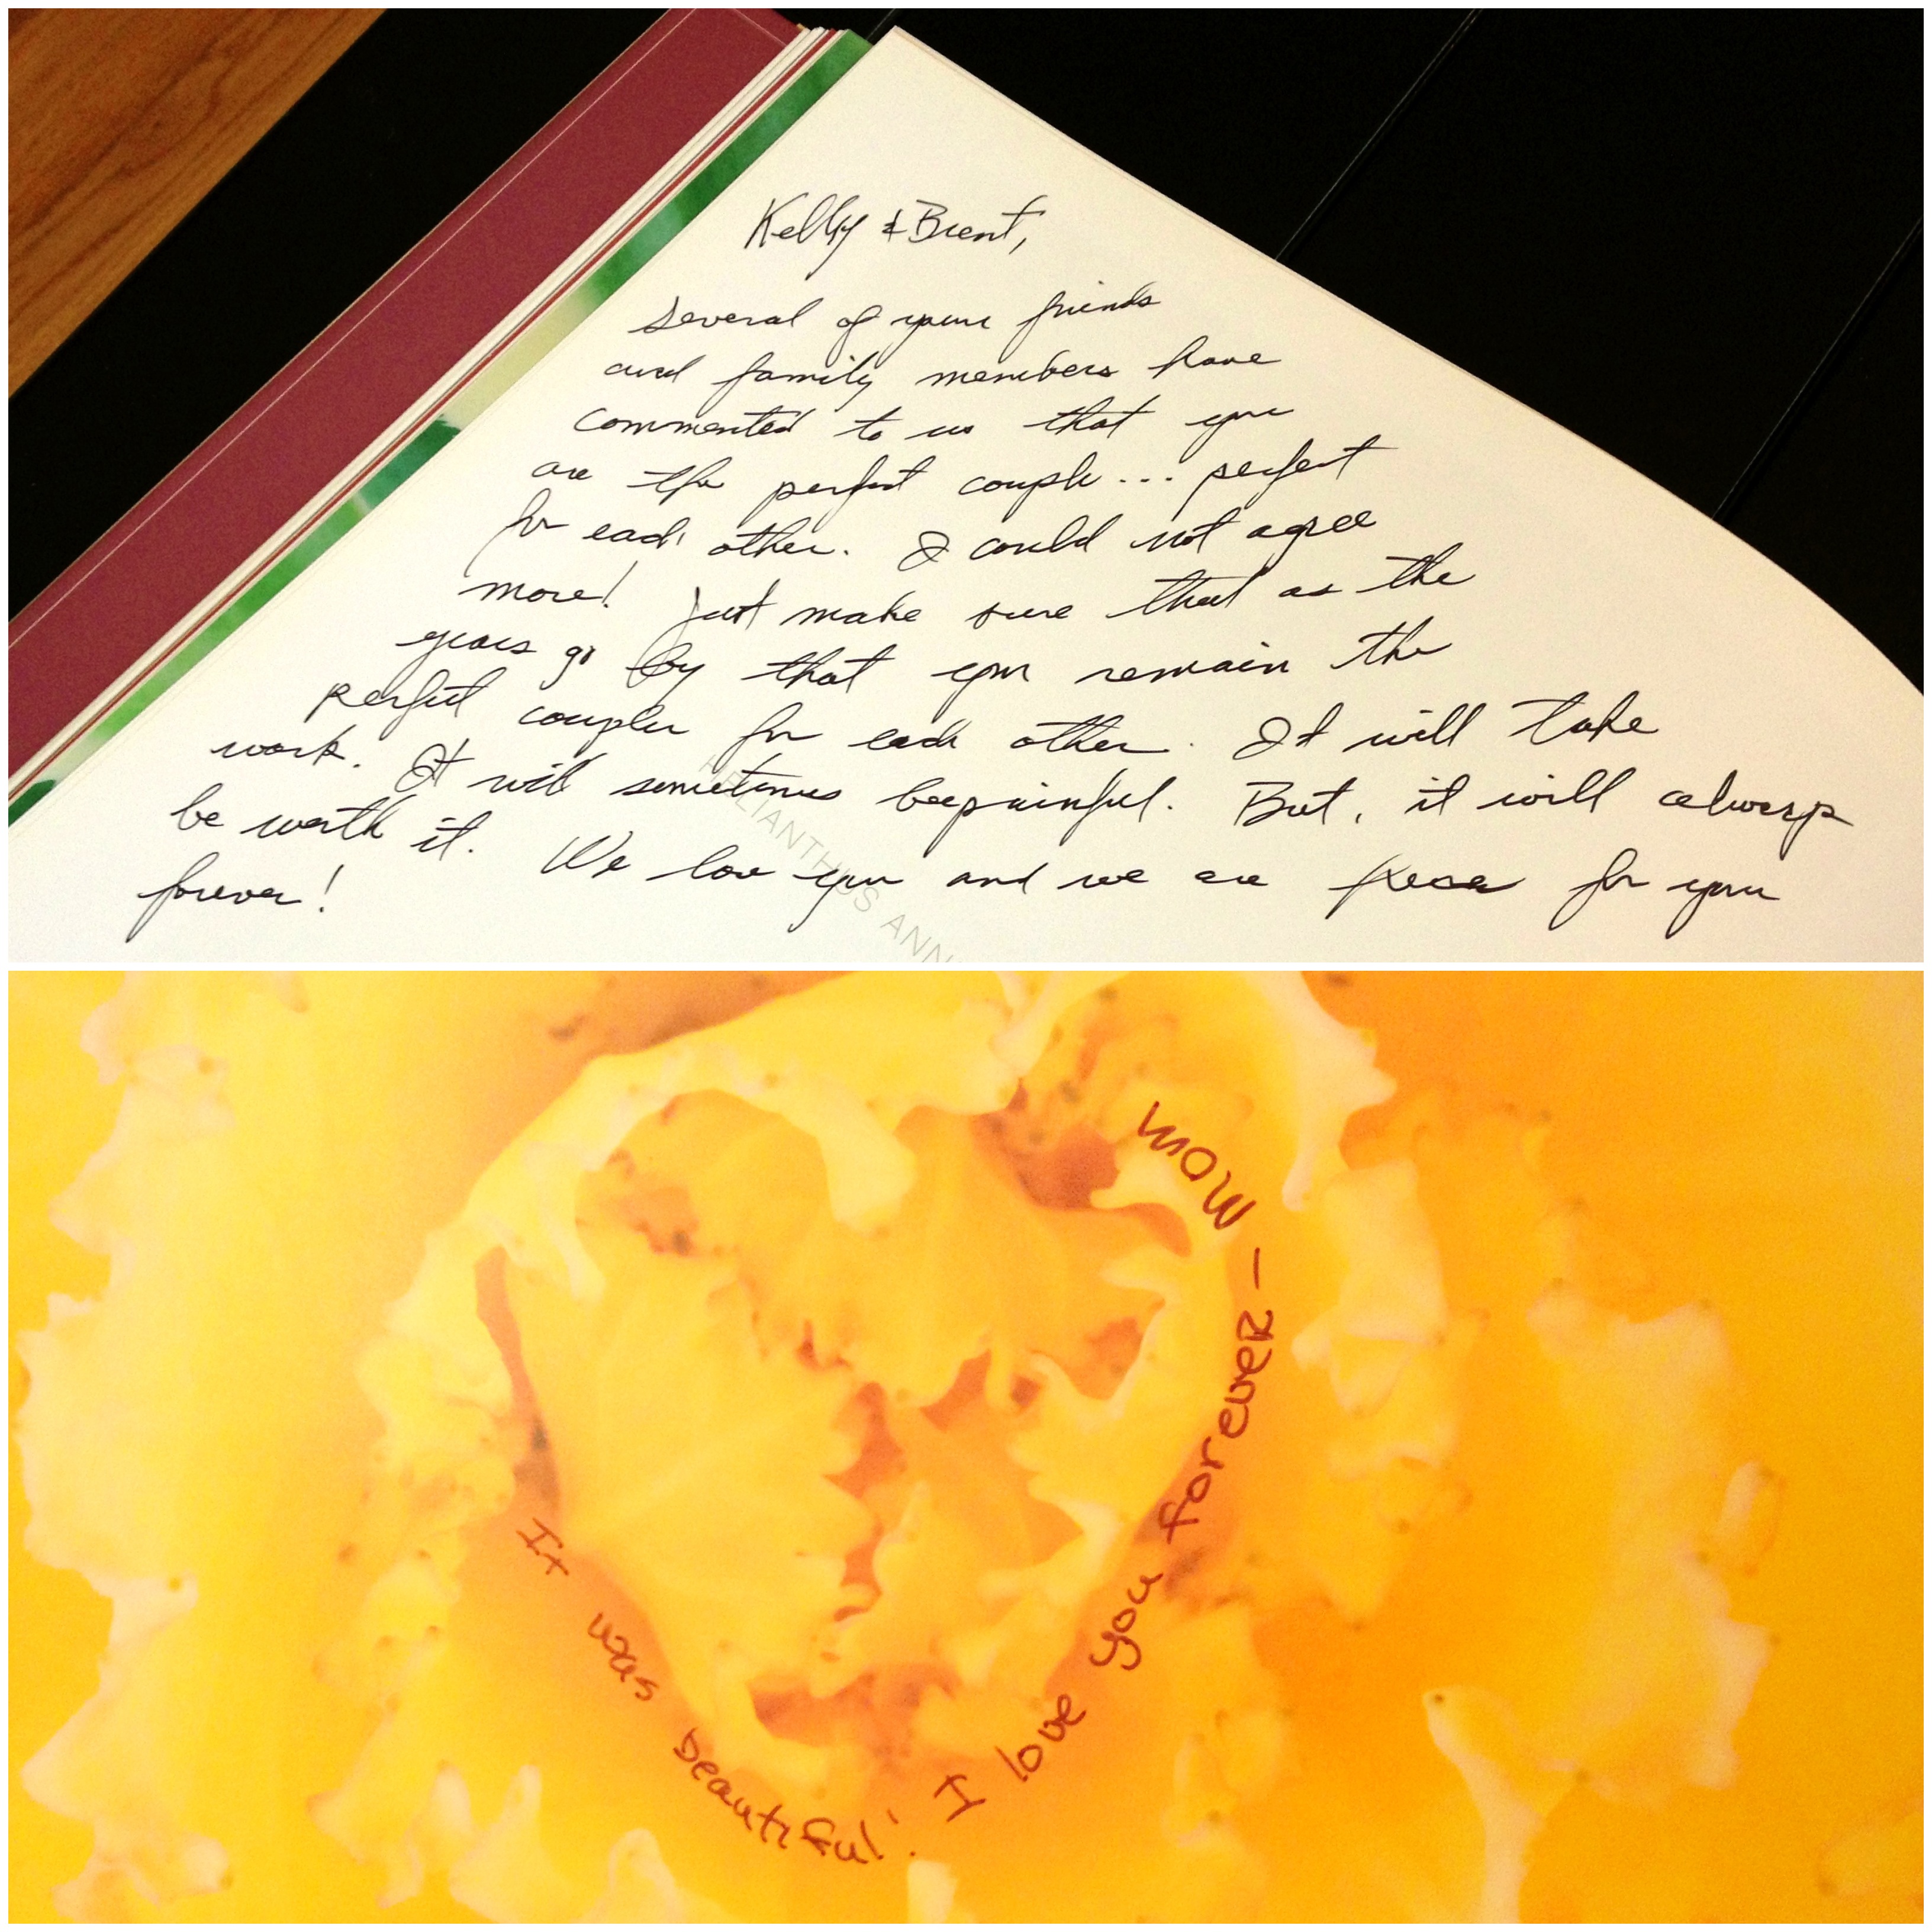 Kelly & Brent,
Several of your friends
and family members have
commented to us that you
are the perfect couple... perfect
for each other. I could not agree
more! Just make sure that as the
years go by that you remain the
perfect couple for each other. It will take
work. It will sometimes be painful. But, it will always
be worth it. We love you and we are here for you
forever!
HELIANTHUS ANN
It was beautiful! I love you forever - MOM